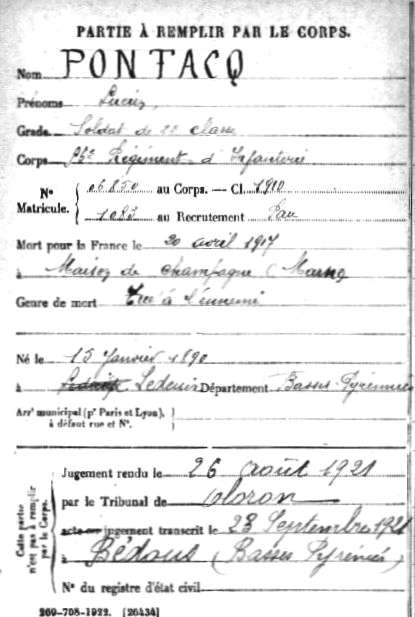 PARTIE À REMPLIR PAR LE CORPS.
Nom PONTACQ
Prénoms Lucien
Grade Soldat de 2e classe
Corps Régiment d'Infanterie
Nº Matricule. { 06.850 au Corps. — Cl. 1910
1083 au Recrutement Pau
Mort pour la France le 20 avril 1917
à Maison de Champagne (Marne
Genre de mort Tué à l'ennemi
Né le 15 Janvier 1890
à Ledeuix Département Basses-Pyrénées
Arrt municipal (pr Paris et Lyon), à défaut rue et Nº. }
Cette partie n'est pas à remplir par le Corps.
Jugement rendu le 26 Août 1921
par le Tribunal de Oloron
acte ou jugement transcrit le 23 Septembre 1921
à Bédous (Basses Pyrénées)
Nº du registre d'état civil
269-708-1922. [26434]